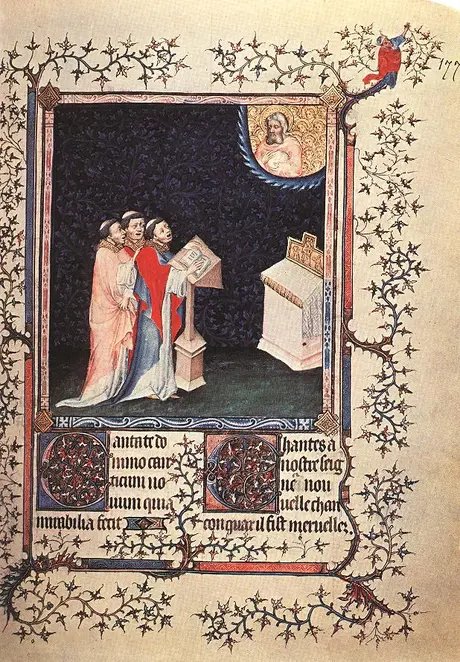 177
Cantate do
mino can
ticum no
uum quia
mirabilia fecit
Chantes a
nostre seig
ne nou
uelle chan
con quar il fist merueilles